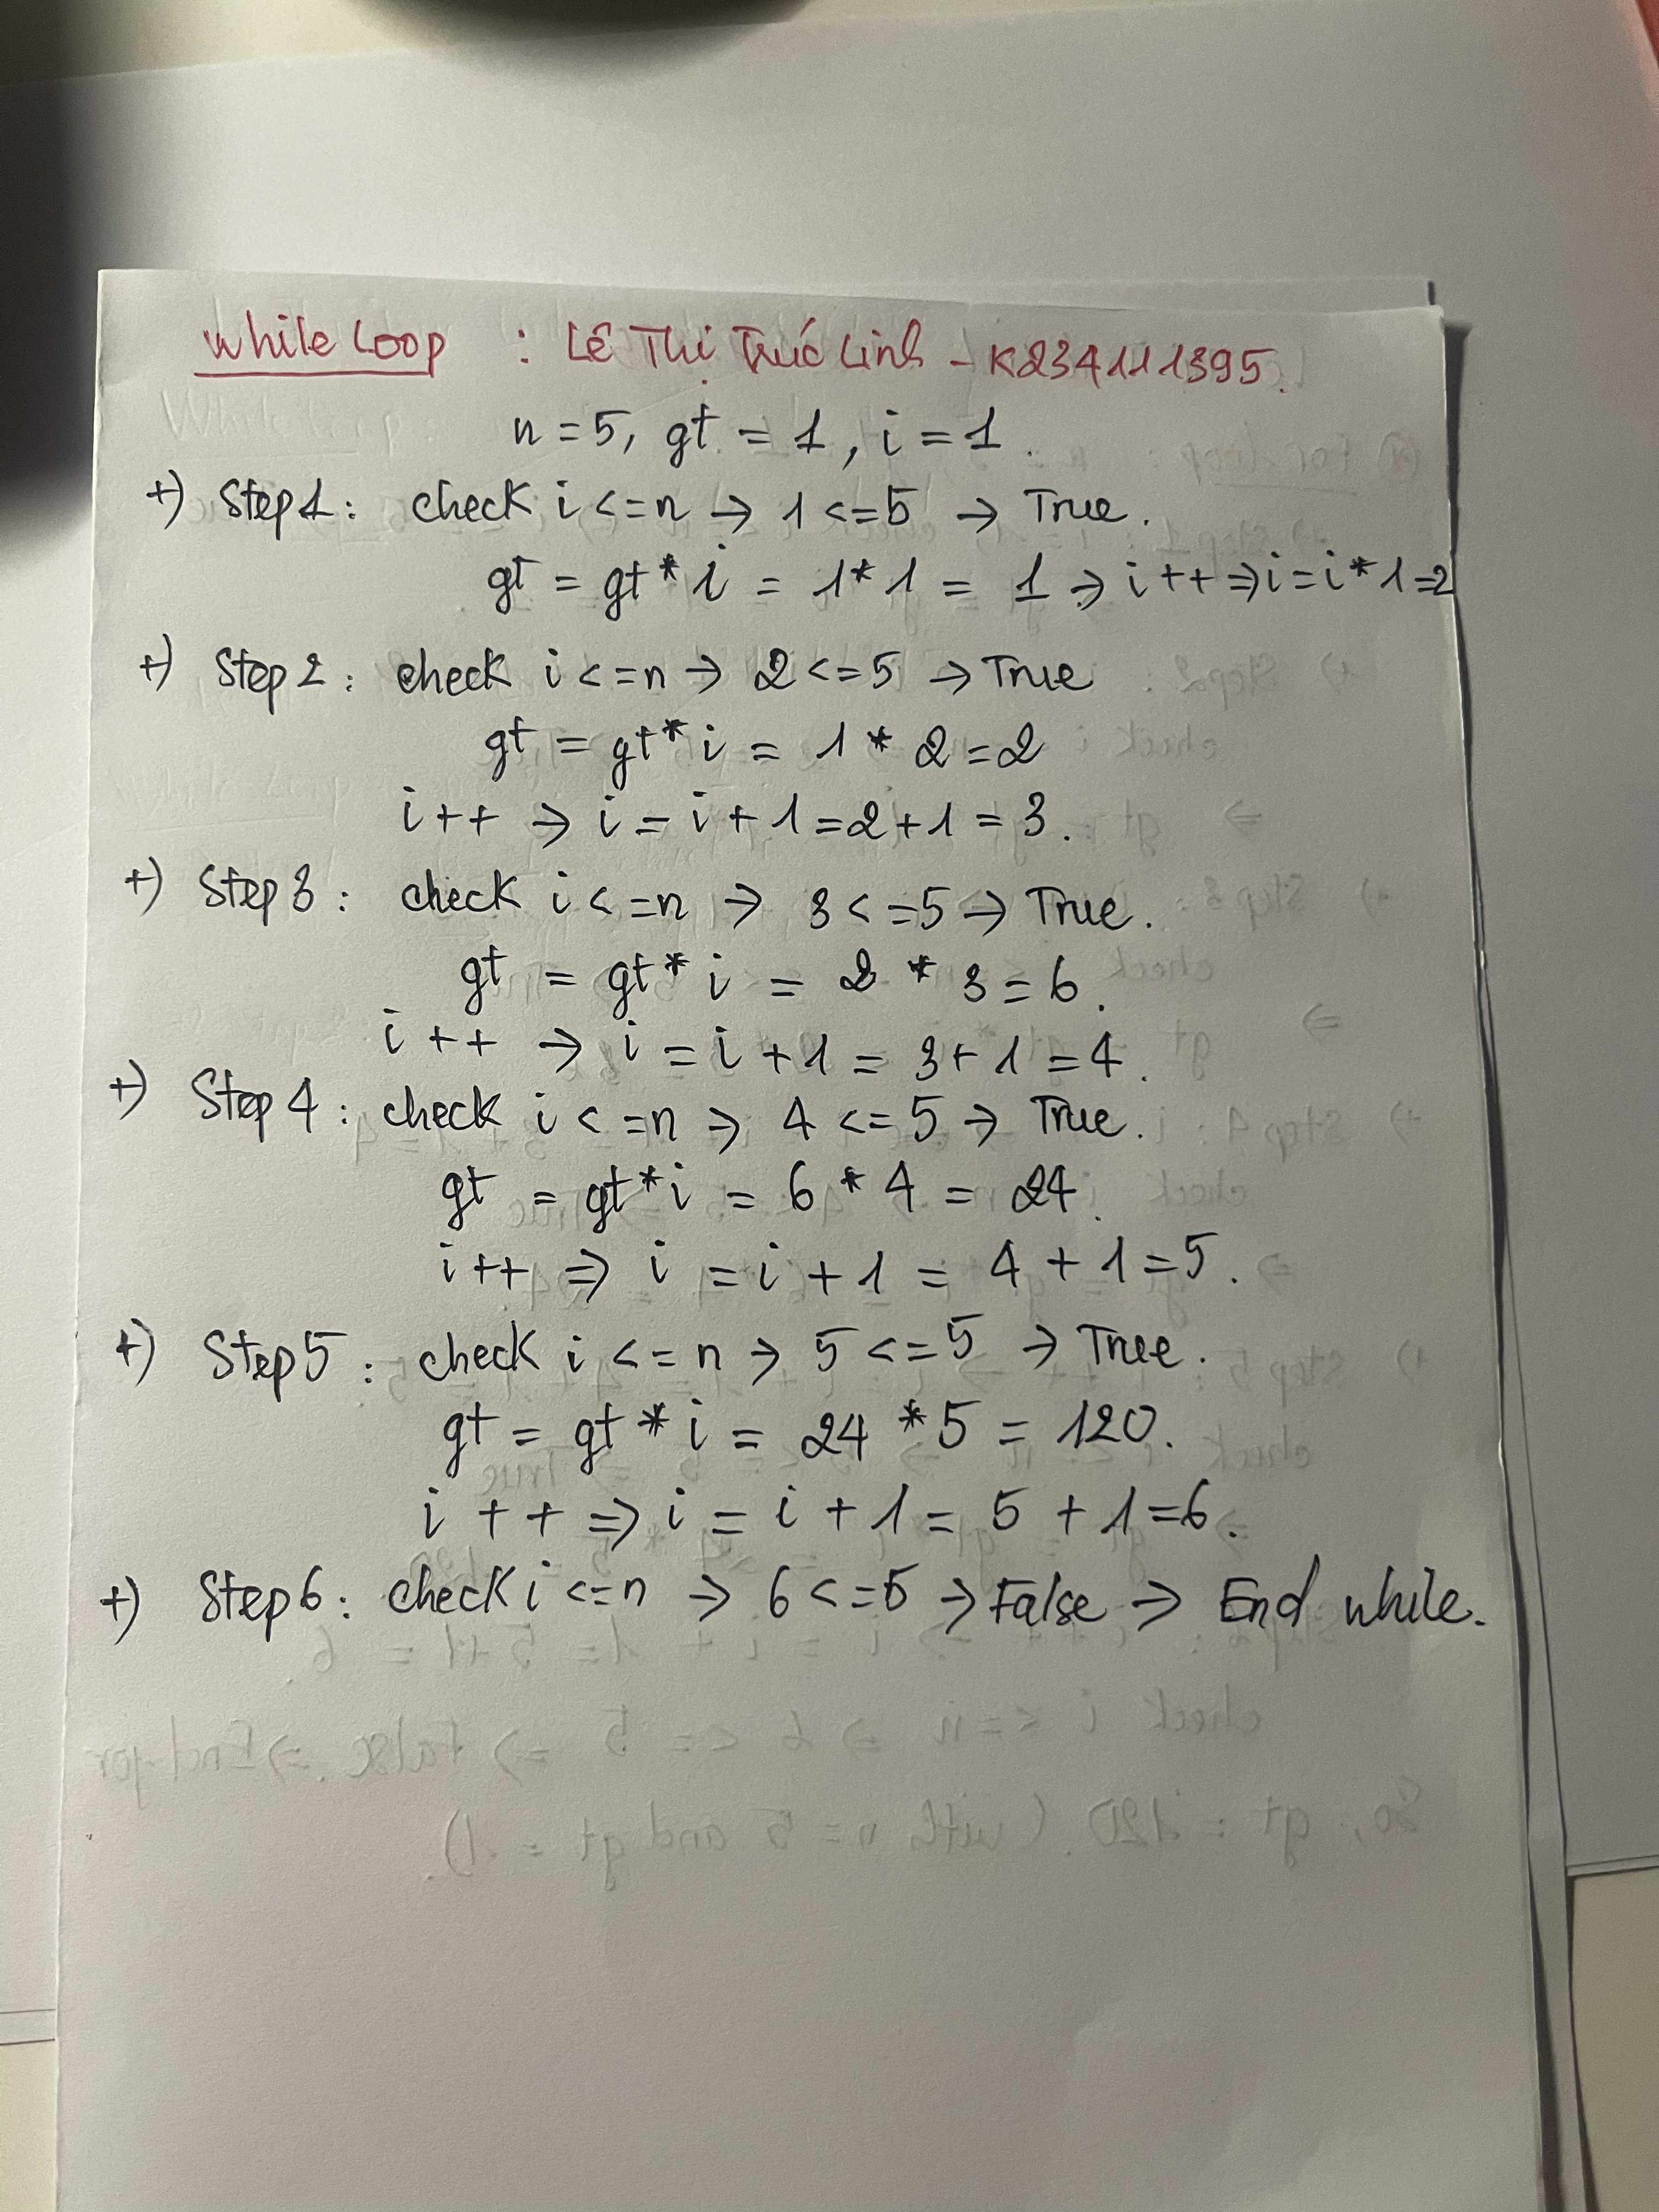 While Loop : Lê Thị Trúc Linh - K234111395.
n = 5, gt = 1, i = 1.
+) Step1: check i <= n → 1 <= 5 → True.
gt = gt * i = 1 * 1 = 1 → i ++ ⇒ i = i * 1 = 2
+) Step 2: check i <= n → 2 <= 5 → True
gt = gt * i = 1 * 2 = 2
i ++ → i = i + 1 = 2 + 1 = 3.
+) Step 3: check i <= n → 3 <= 5 → True.
gt = gt * i = 2 * 3 = 6.
i ++ → i = i + 1 = 3 + 1 = 4.
+) Step 4: check i <= n → 4 <= 5 → True.
gt = gt * i = 6 * 4 = 24.
i ++ ⇒ i = i + 1 = 4 + 1 = 5.
+) Step 5: check i <= n → 5 <= 5 → True.
gt = gt * i = 24 * 5 = 120.
i ++ ⇒ i = i + 1 = 5 + 1 = 6.
+) Step 6: check i <= n → 6 <= 5 → False → End while.
check i <= n ⇒ 6 <= 5 ⇒ False. ⇒ End for
So, gt = 120. (with n = 5 and gt = 1).